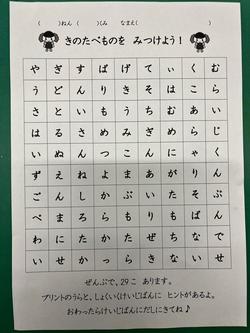 （　　）ねん（　　）くみ　なまえ（　　　　　　）
きのたべものを　みつけよう！
や ぎ す ぱ げ て ぃ く む
う ど ん り き そ は こ ら
さ と い も う ち む あ い
は る さ め み ぎ め ら じ
い ぬ ん つ こ ん に ゃ く
ず え ね よ ま あ が り ん
ご ん し か ぶ い た そ ぶ
べ ま ろ ら も り も ば ん
わ に た か た ぜ ち な で
い せ か っ ら き な い せ
ぜんぶで、29こ　あります。
プリントのうらと、しょくいくけいじばんに　ヒントがあるよ。
おわったらけいじばんにだしにきてね♪